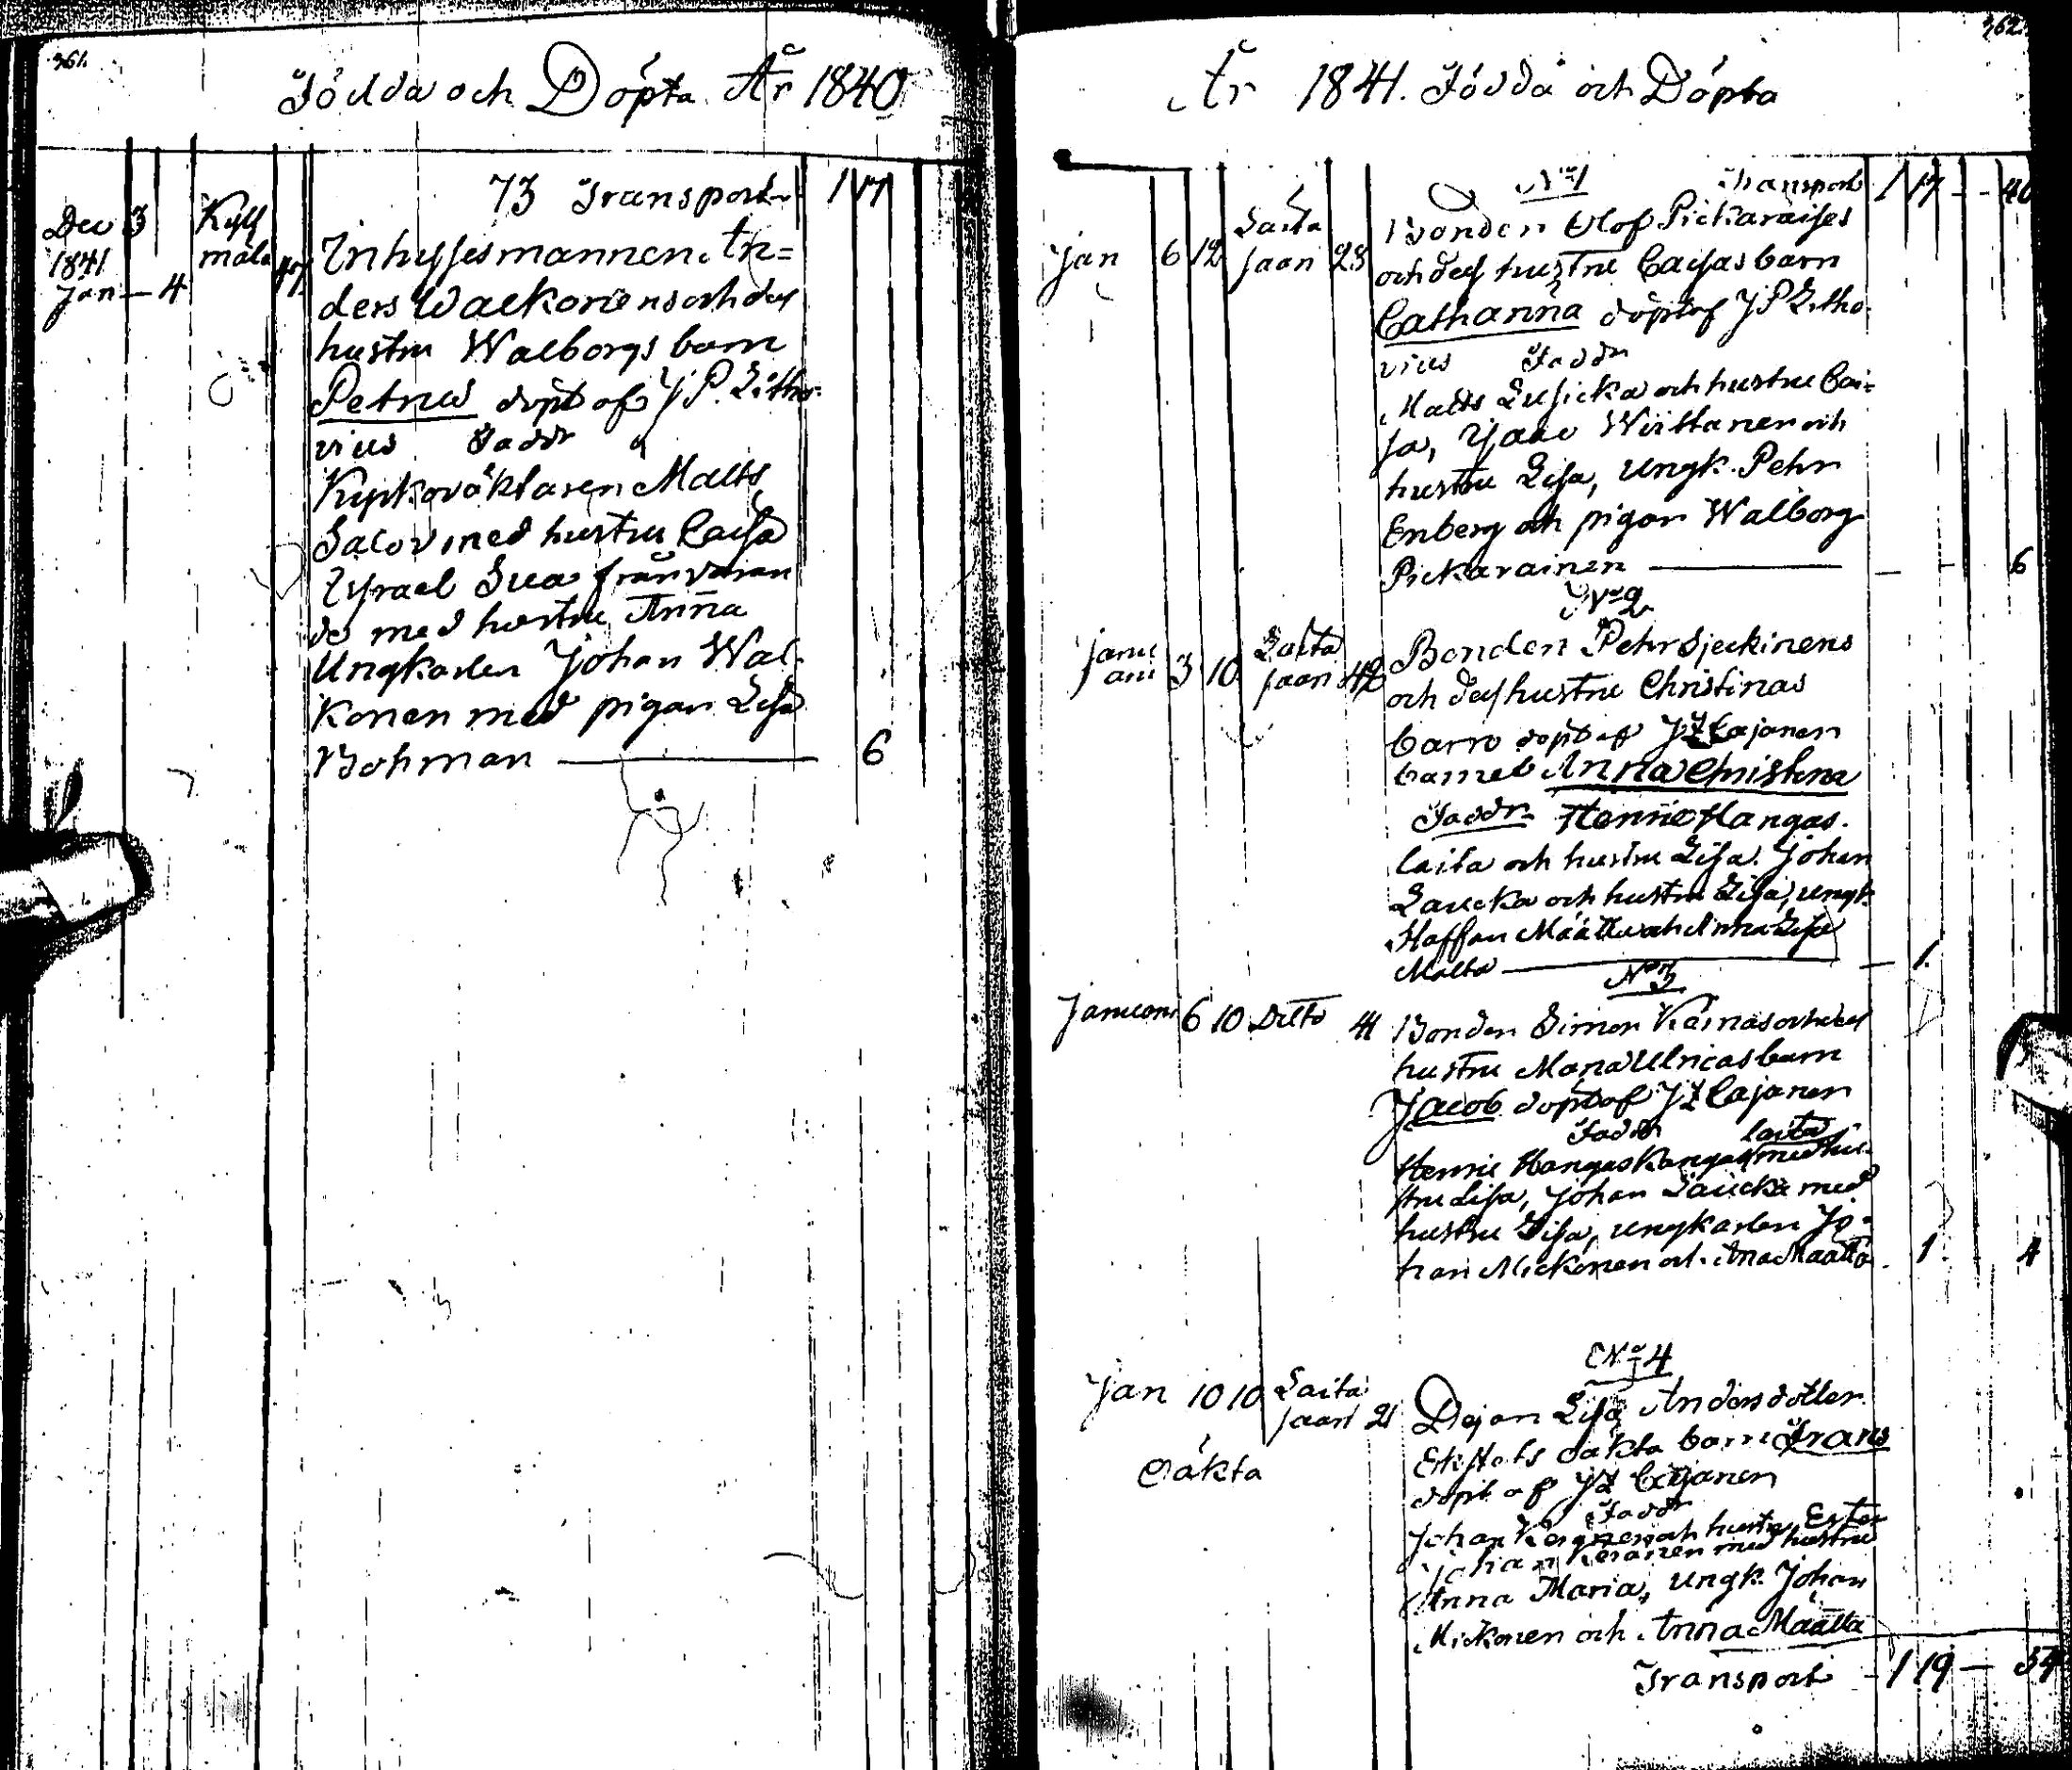 361.
Födda och Döpta År 1840
73 Transport 1 17
Dec 3
1841
Jan — 4
Kyll
mäla
Inhyssesmannen An=
ders Walkonens och dess
hustru Walborgs barn
Petrus döpt af J P. Litho-
vius Faddr
Kyrkoväktaren Matts
med hustru Caisa
Israel Sua frånvaran
de med hustru Anna
Ungkarlen Johan Wal-
konen med pigan Lisa
Bohman — 6
362.
År 1841. Födda och Döpta
No 1 Transport 1 17 — 40
Jan 6 12 Laita
jaan 28
Bonden Olof Pickaraises
och dess hustru Caisas barn
Catharina döpt af J P Litho-
vius Faddr
Matts Lusicka och hustru Cai-
sa, Isaac Wiittanen och
hustru Lisa, Ungk. Pehr
Enberg och pigan Walborg
Pickarainen — — — 6
No 2
Janu
ari 3 10 Laita
jaan 42
Bonden Pehr Sjeckinens
och dess hustru Christinas
barn döpt af J Z Cajanen
barnet Anna Christina
Faddr Henric Hangas-
laita och hustru Lisa. Johan
Laucka och hustru Lisa, ungk.
Staffan Määtta och Anna Lisa
Mälta — 1.
No 3
Januari 6 10 Ditto 41
Bonden Simon Kärnas och dess
hustru Maria Ulricas barn
Jacob döpt af J Z Cajanen
Faddr laita
Henric Hangas Kangas med hu-
stru Lisa, Johan Laucka med
hustru Lisa, ungkarlen Jo-
han Mickonen och Ana Määtta. 1. 4
No 4
Jan 10 10 Laita
jaan 21
Oäkta
Dejan Lisa Andersdotter
oäkta barn Frans
döpt af J Z Cajanen
Faddr
Johan Keränen och hustru Ester
Johan Keränen med hustru
Anna Maria, Ungk. Johan
Mickonen och Anna Määtta
Transport — 1 19 — 54